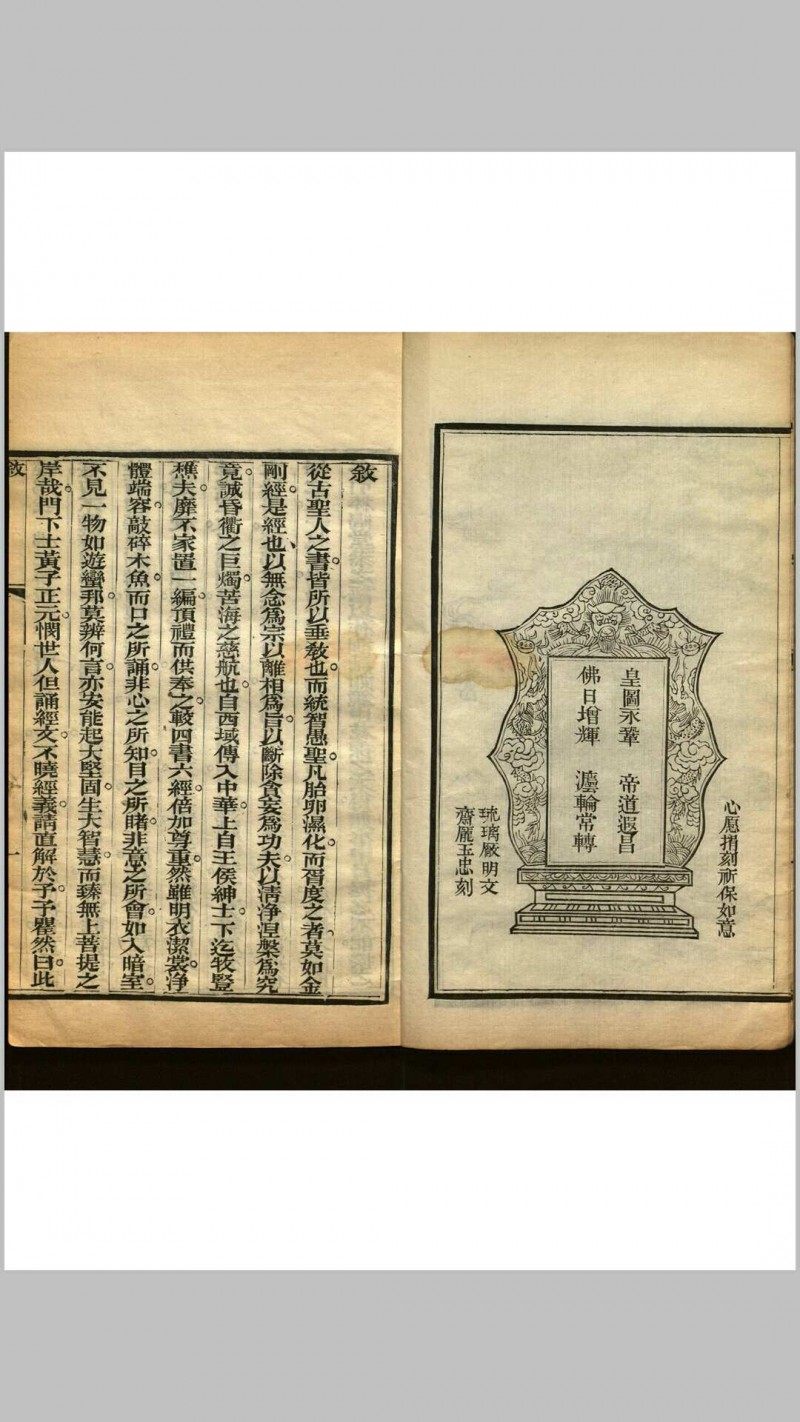 心愿捐刻祈保如意
皇圖永鞏　帝道遐昌
佛日增輝　灋輪常轉
琉璃厰明文
齋龐玉忠刻
敘
從古聖人之書。皆所以垂敎也。而統智愚聖凡胎卵濕化。而胥度之者。莫如金
剛經。是經也、以無念爲宗以離相爲旨。以斷除貪妄爲功夫。以淸淨涅槃爲究
竟。誠昏衢之巨燭。苦海之慈航也。自西域傳入中華。上自王侯紳士。下迄牧豎
樵夫。靡不家置一編。頂禮而供奉之。較四書六經。倍加尊重。然雖明衣潔裳。淨
體端容。敲碎木魚。而口之所誦。非心之所知。目之所睹。非意之所會。如入暗室。
不見一物如遊蠻邦。莫辨何言。亦安能起大堅固。生大智慧。而臻無上菩提之
岸哉。門下士黃子正元。憫世人但誦經文。不曉經義。請直解於予。予瞿然曰。此
敘
一